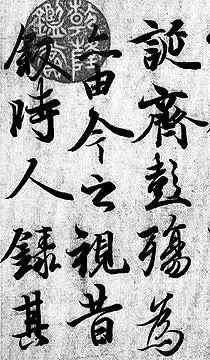 誕齊彭殤為
亦由今之視昔
敘時人錄其
乾隆
鑑賞